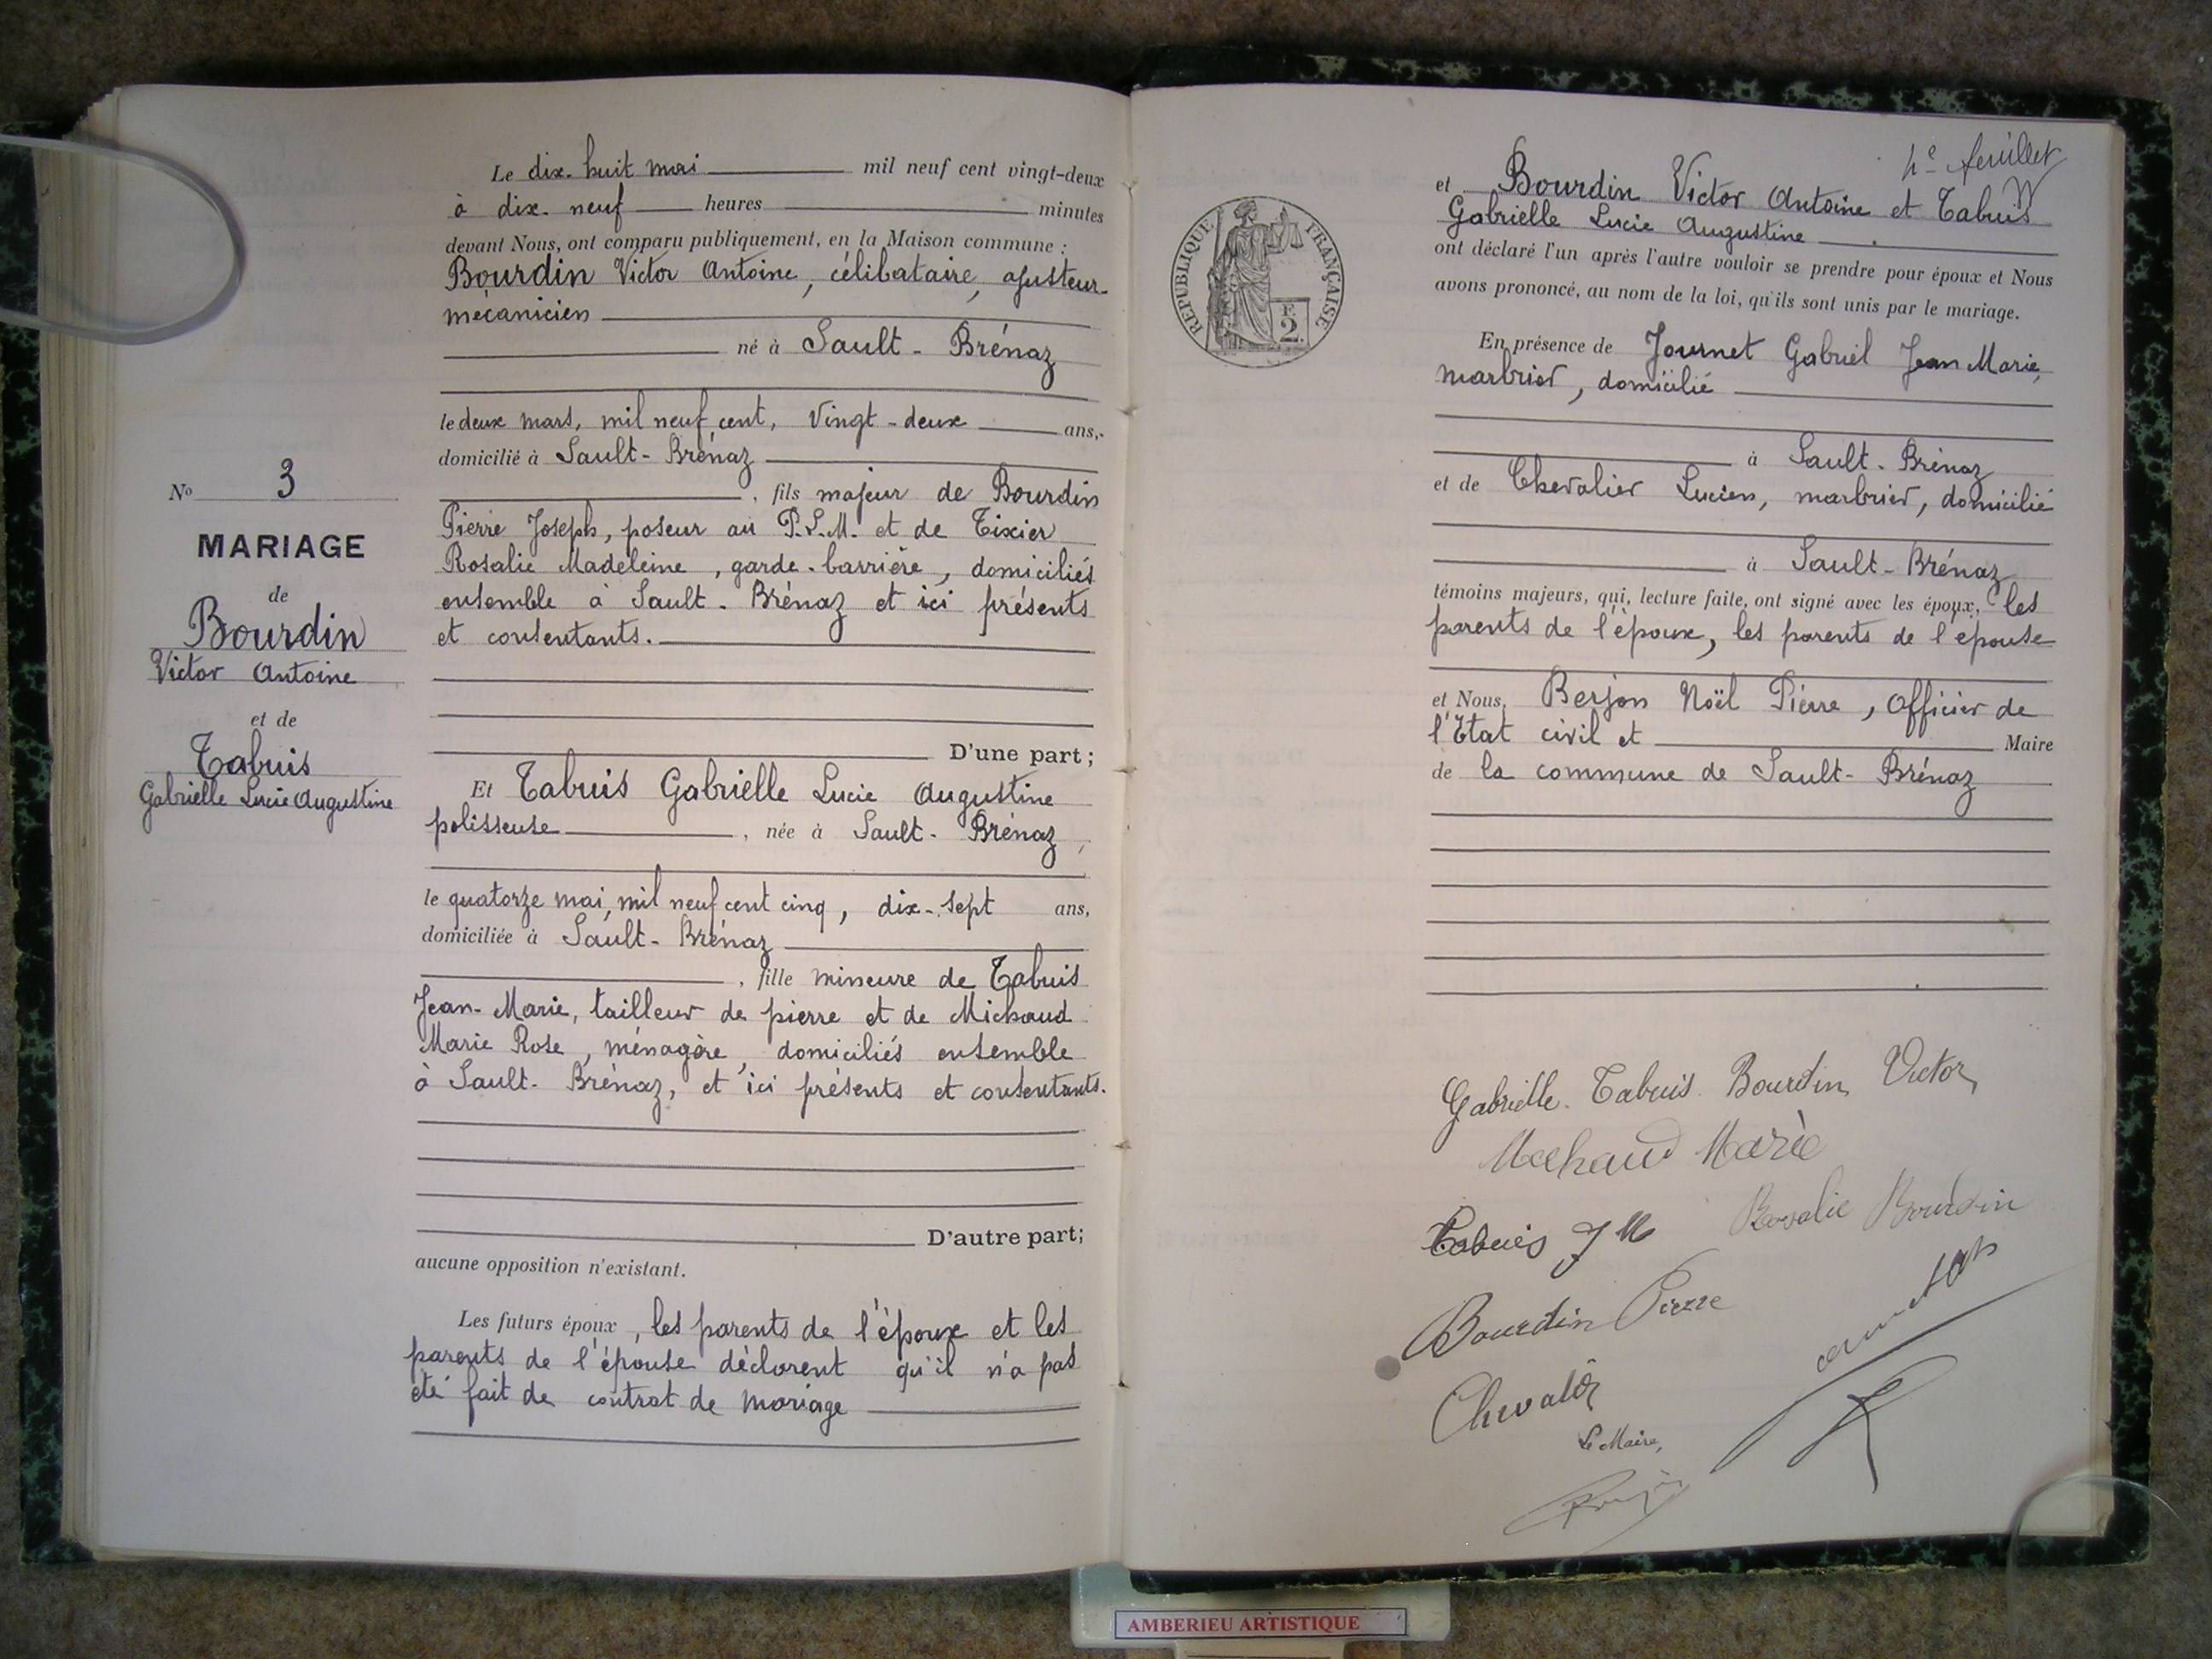 N° 3
MARIAGE
de
Bourdin
Victor Antoine
et de
Tabuis
Gabrielle Lucie Augustine
Le dix-huit mai mil neuf cent vingt-deux
à dix-neuf heures minutes
devant Nous, ont comparu publiquement, en la Maison commune :
Bourdin Victor Antoine, célibataire, ajusteur-
mécanicien
né à Sault-Brénaz
le deux mars, mil neuf cent, vingt-deux ans,
domicilié à Sault-Brénaz
, fils majeur de Bourdin
Pierre Joseph, poseur au P.L.M. et de Tixier
Rosalie Madeleine, garde-barrière, domiciliés
ensemble à Sault-Brénaz et ici présents
et consentants.
D'une part ;
Et Tabuis Gabrielle Lucie Augustine
polisseuse, née à Sault-Brénaz,
le quatorze mai, mil neuf cent cinq, dix-sept ans,
domiciliée à Sault-Brénaz
, fille mineure de Tabuis
Jean-Marie, tailleur de pierre et de Michaud
Marie Rose, ménagère, domiciliés ensemble
à Sault-Brénaz, et ici présents et consentants.
D'autre part ;
aucune opposition n'existant.
Les futurs époux, les parents de l'époux et les
parents de l'épouse déclarent qu'il n'a pas
été fait de contrat de mariage
4e feuillet
RÉPUBLIQUE FRANÇAISE
F. 2.
et Bourdin Victor Antoine et Tabuis
Gabrielle Lucie Augustine
ont déclaré l'un après l'autre vouloir se prendre pour époux et Nous
avons prononcé, au nom de la loi, qu'ils sont unis par le mariage.
En présence de Journet Gabriel Jean Marie,
marbrier, domicilié
à Sault-Brénaz
et de Chevalier Lucien, marbrier, domicilié
à Sault-Brénaz
témoins majeurs, qui, lecture faite, ont signé avec les époux, les
parents de l'époux, les parents de l'épouse
et Nous, Berjon Noël Pierre, Officier de
l'Etat civil et Maire
de la commune de Sault-Brénaz
Gabrielle Tabuis Bourdin Victor
Michaud Marie
Tabuis J M Rosalie Bourdin
Bourdin Pierre
Chevalier
Le Maire,
AMBERIEU ARTISTIQUE